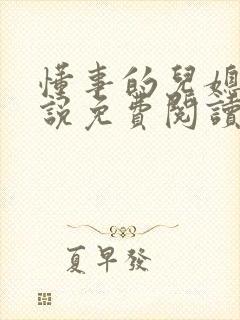 懂事的兒媳
說免費閱讀
夏早發